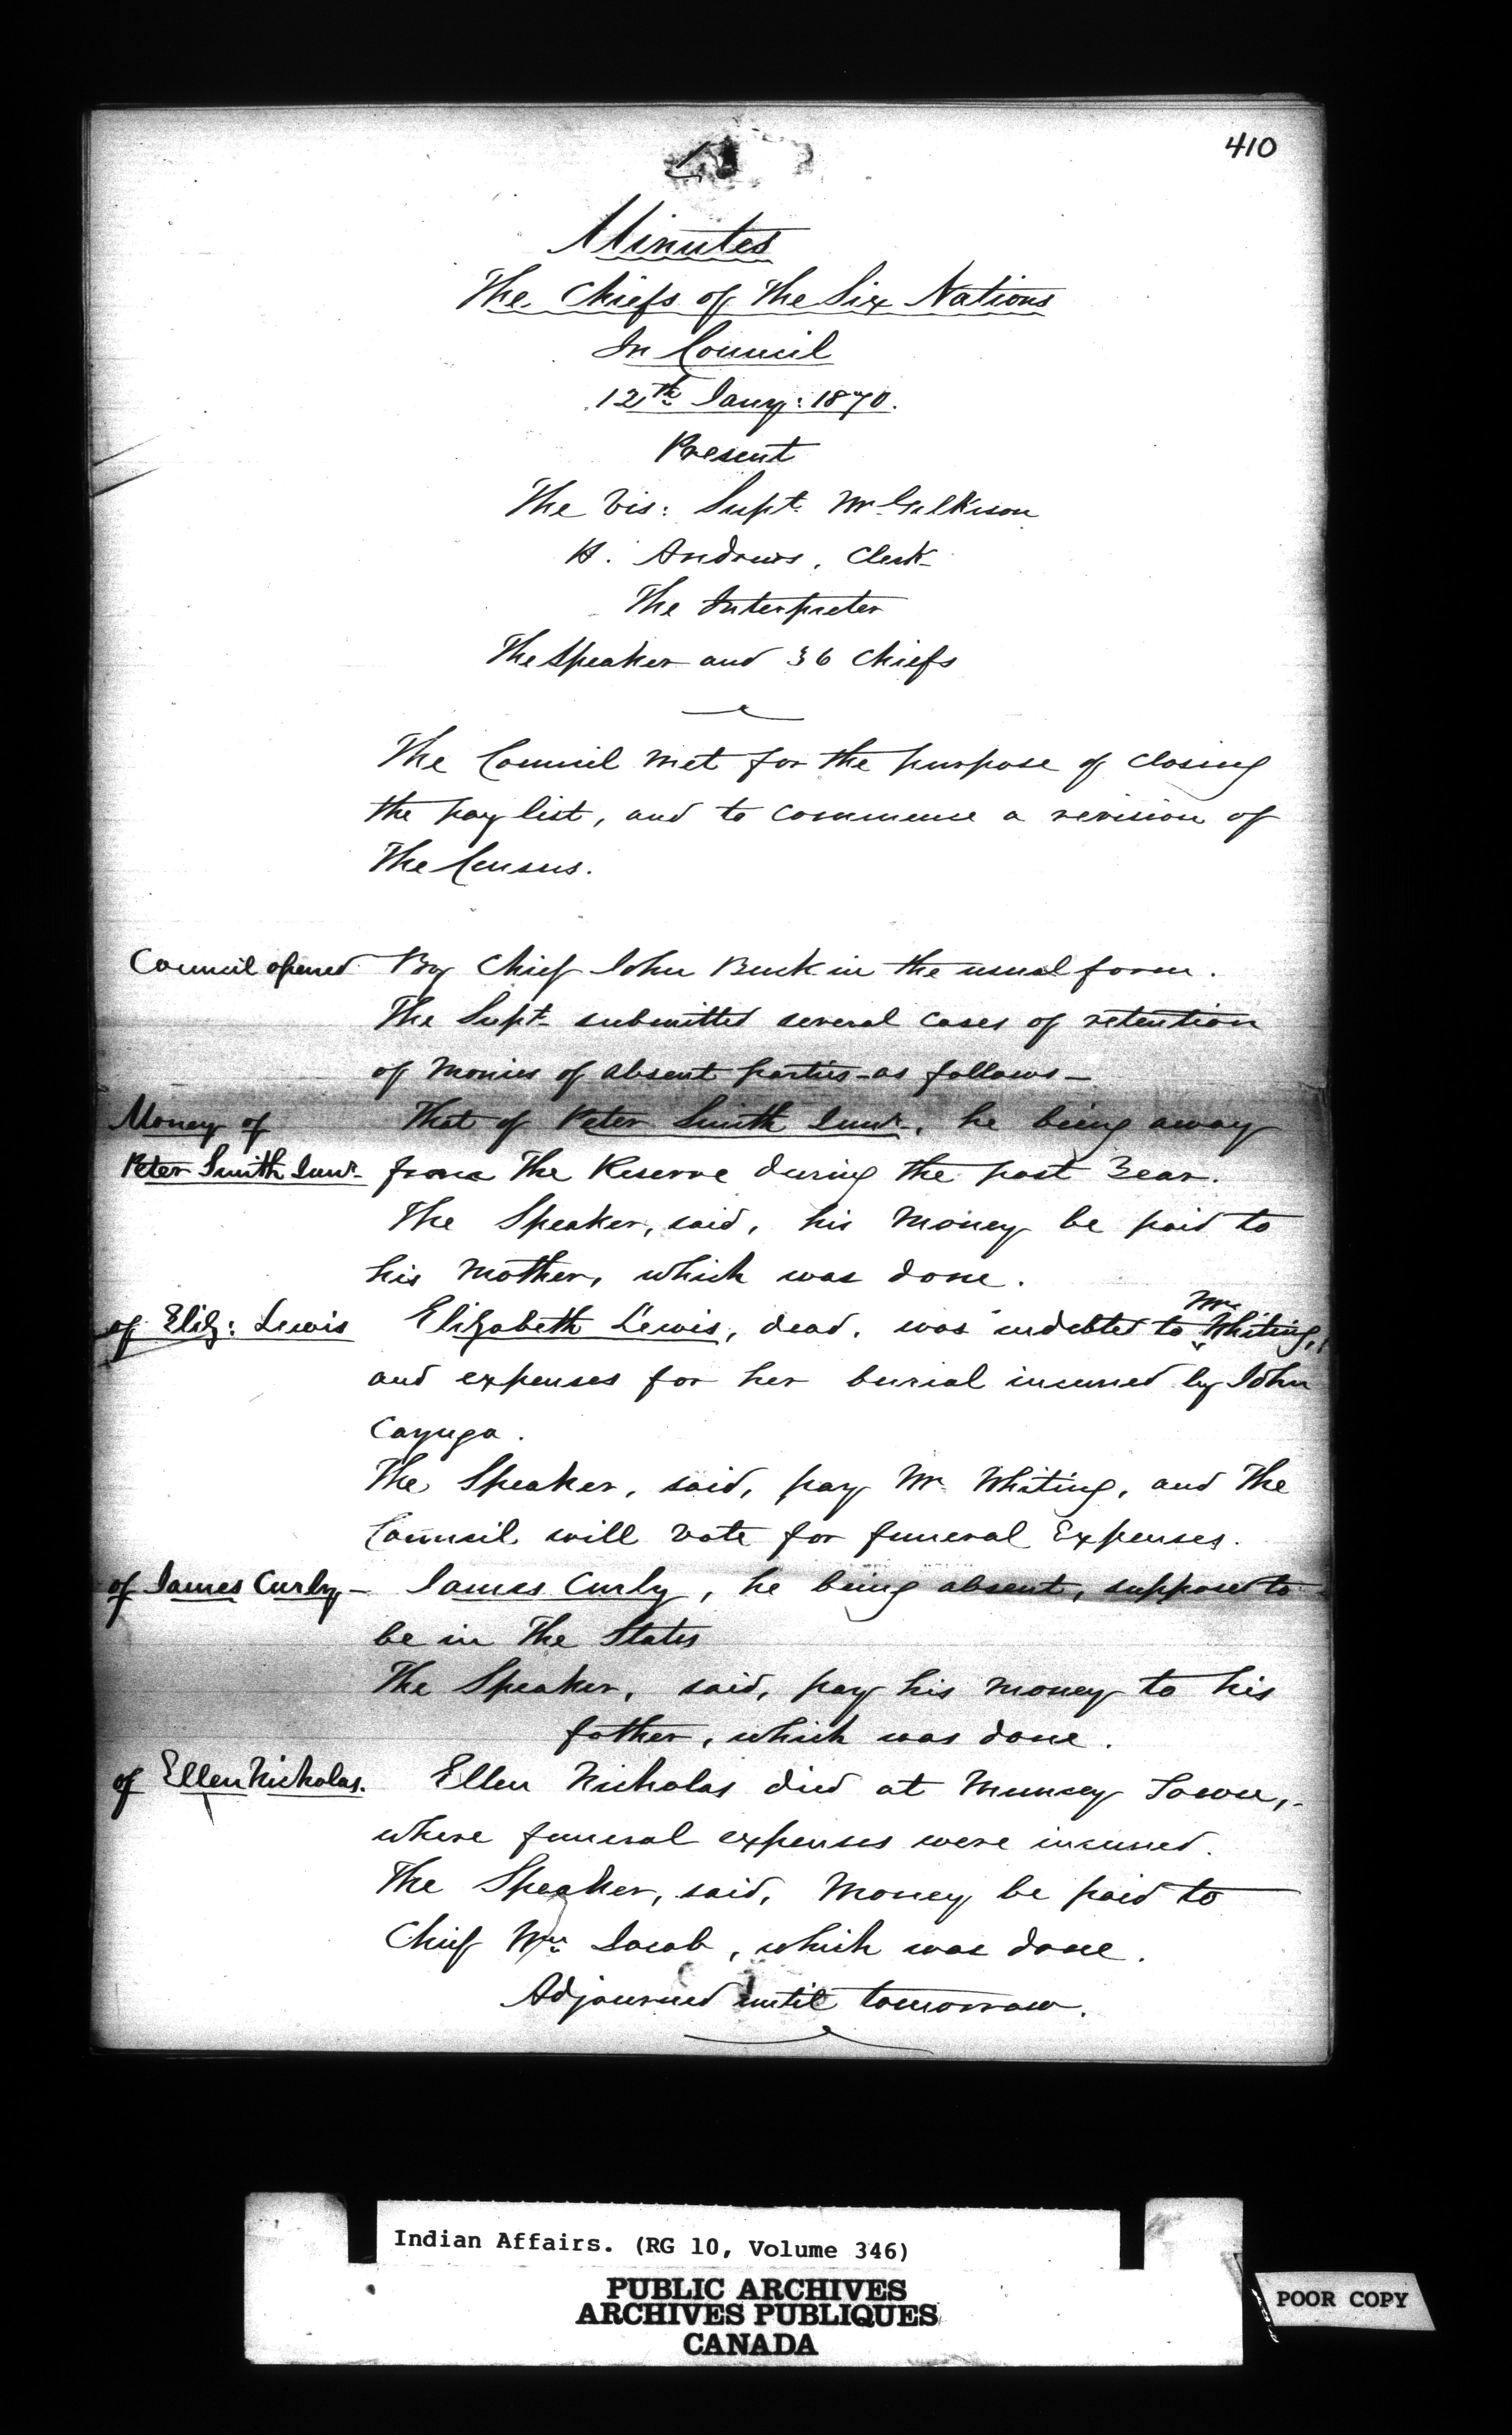 410
Minutes
The Chiefs of the Six Nations
In Council
12th Jany: 1870.
Present
The Vis: Supt. Mr. Gilkison
H. Andrews, Clerk
The Interpreter
The Speaker and 36 Chiefs
The Council met for the purpose of closing
the pay list, and to commense a revision of
the Census.
Council opened By Chief John Buck in the usual form.
The Supt. submitted several cases of retention
of monies of absent parties - as follows -
Money of That of Peter Smith Junr., he being away
Peter Smith Junr. from the Reserve during the past Year.
The Speaker, said, his money be paid to
his mother, which was done.
of Eliz: Lewis Elizabeth Lewis, dead, was indebted to Mr. Whiting,
and expenses for her burial incurred by John
Cayuga.
The Speaker, said, pay Mr. Whiting, and the
Council will vote for funeral Expenses.
of James Curly - James Curly, he being absent, supposed to
be in the States
The Speaker, said, pay his money to his
father, which was done.
of Ellen Nicholas. Ellen Nicholas died at Munsey Town, -
where funeral expenses were incurred.
The Speaker, said, Money be paid to
Chief Wm. Jacob, which was done.
Adjourned until tomorrow.
Indian Affairs. (RG 10, Volume 346)
PUBLIC ARCHIVES
ARCHIVES PUBLIQUES
CANADA
POOR COPY